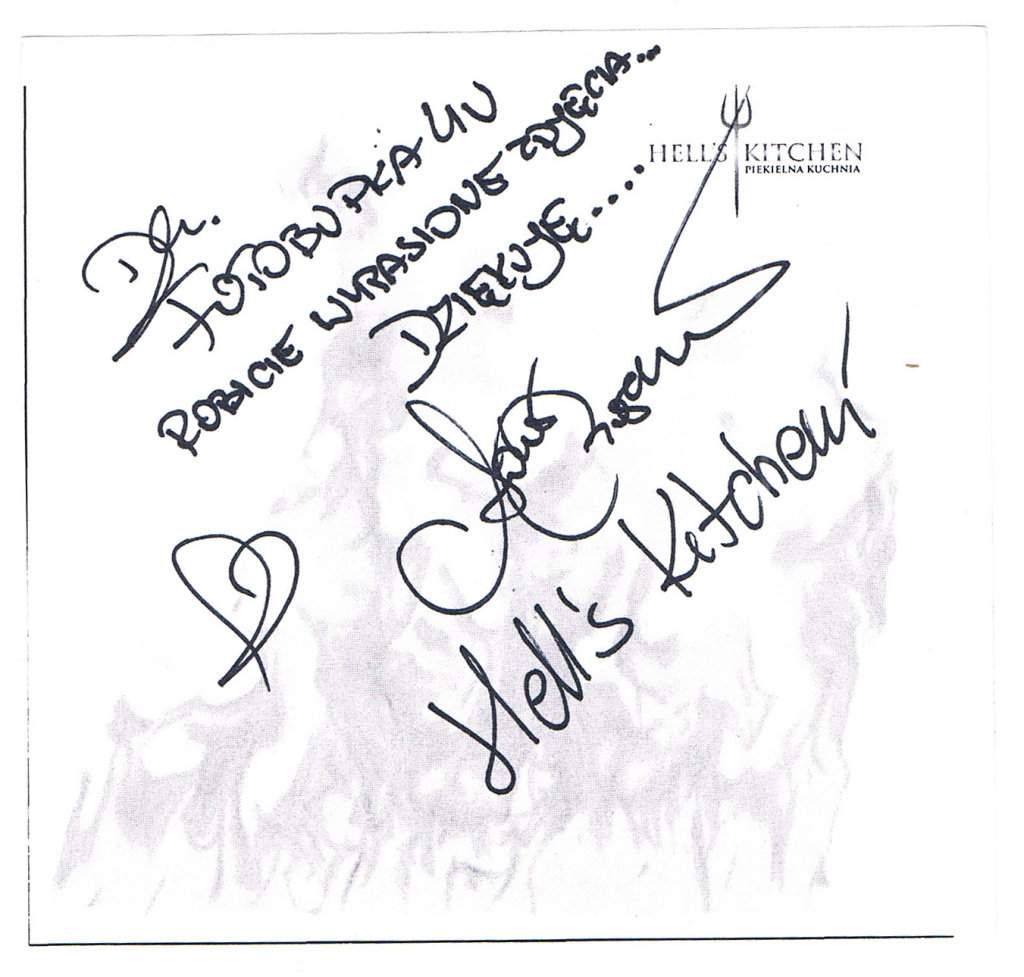 HELL'S KITCHEN
PIEKIELNA KUCHNIA
FOTOBUDKA 4U
ROBICIE WYPASIONE ZDJĘCIA...
DZIĘKUJĘ.....
Hell's Kitchen